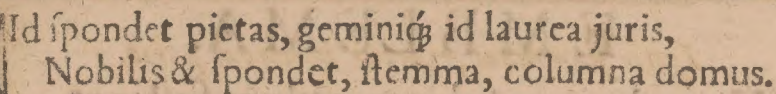 Id ſpondet pietas, geminiq́; id laurea juris,
Nobilis & ſpondet, ſtemma, columna domus.